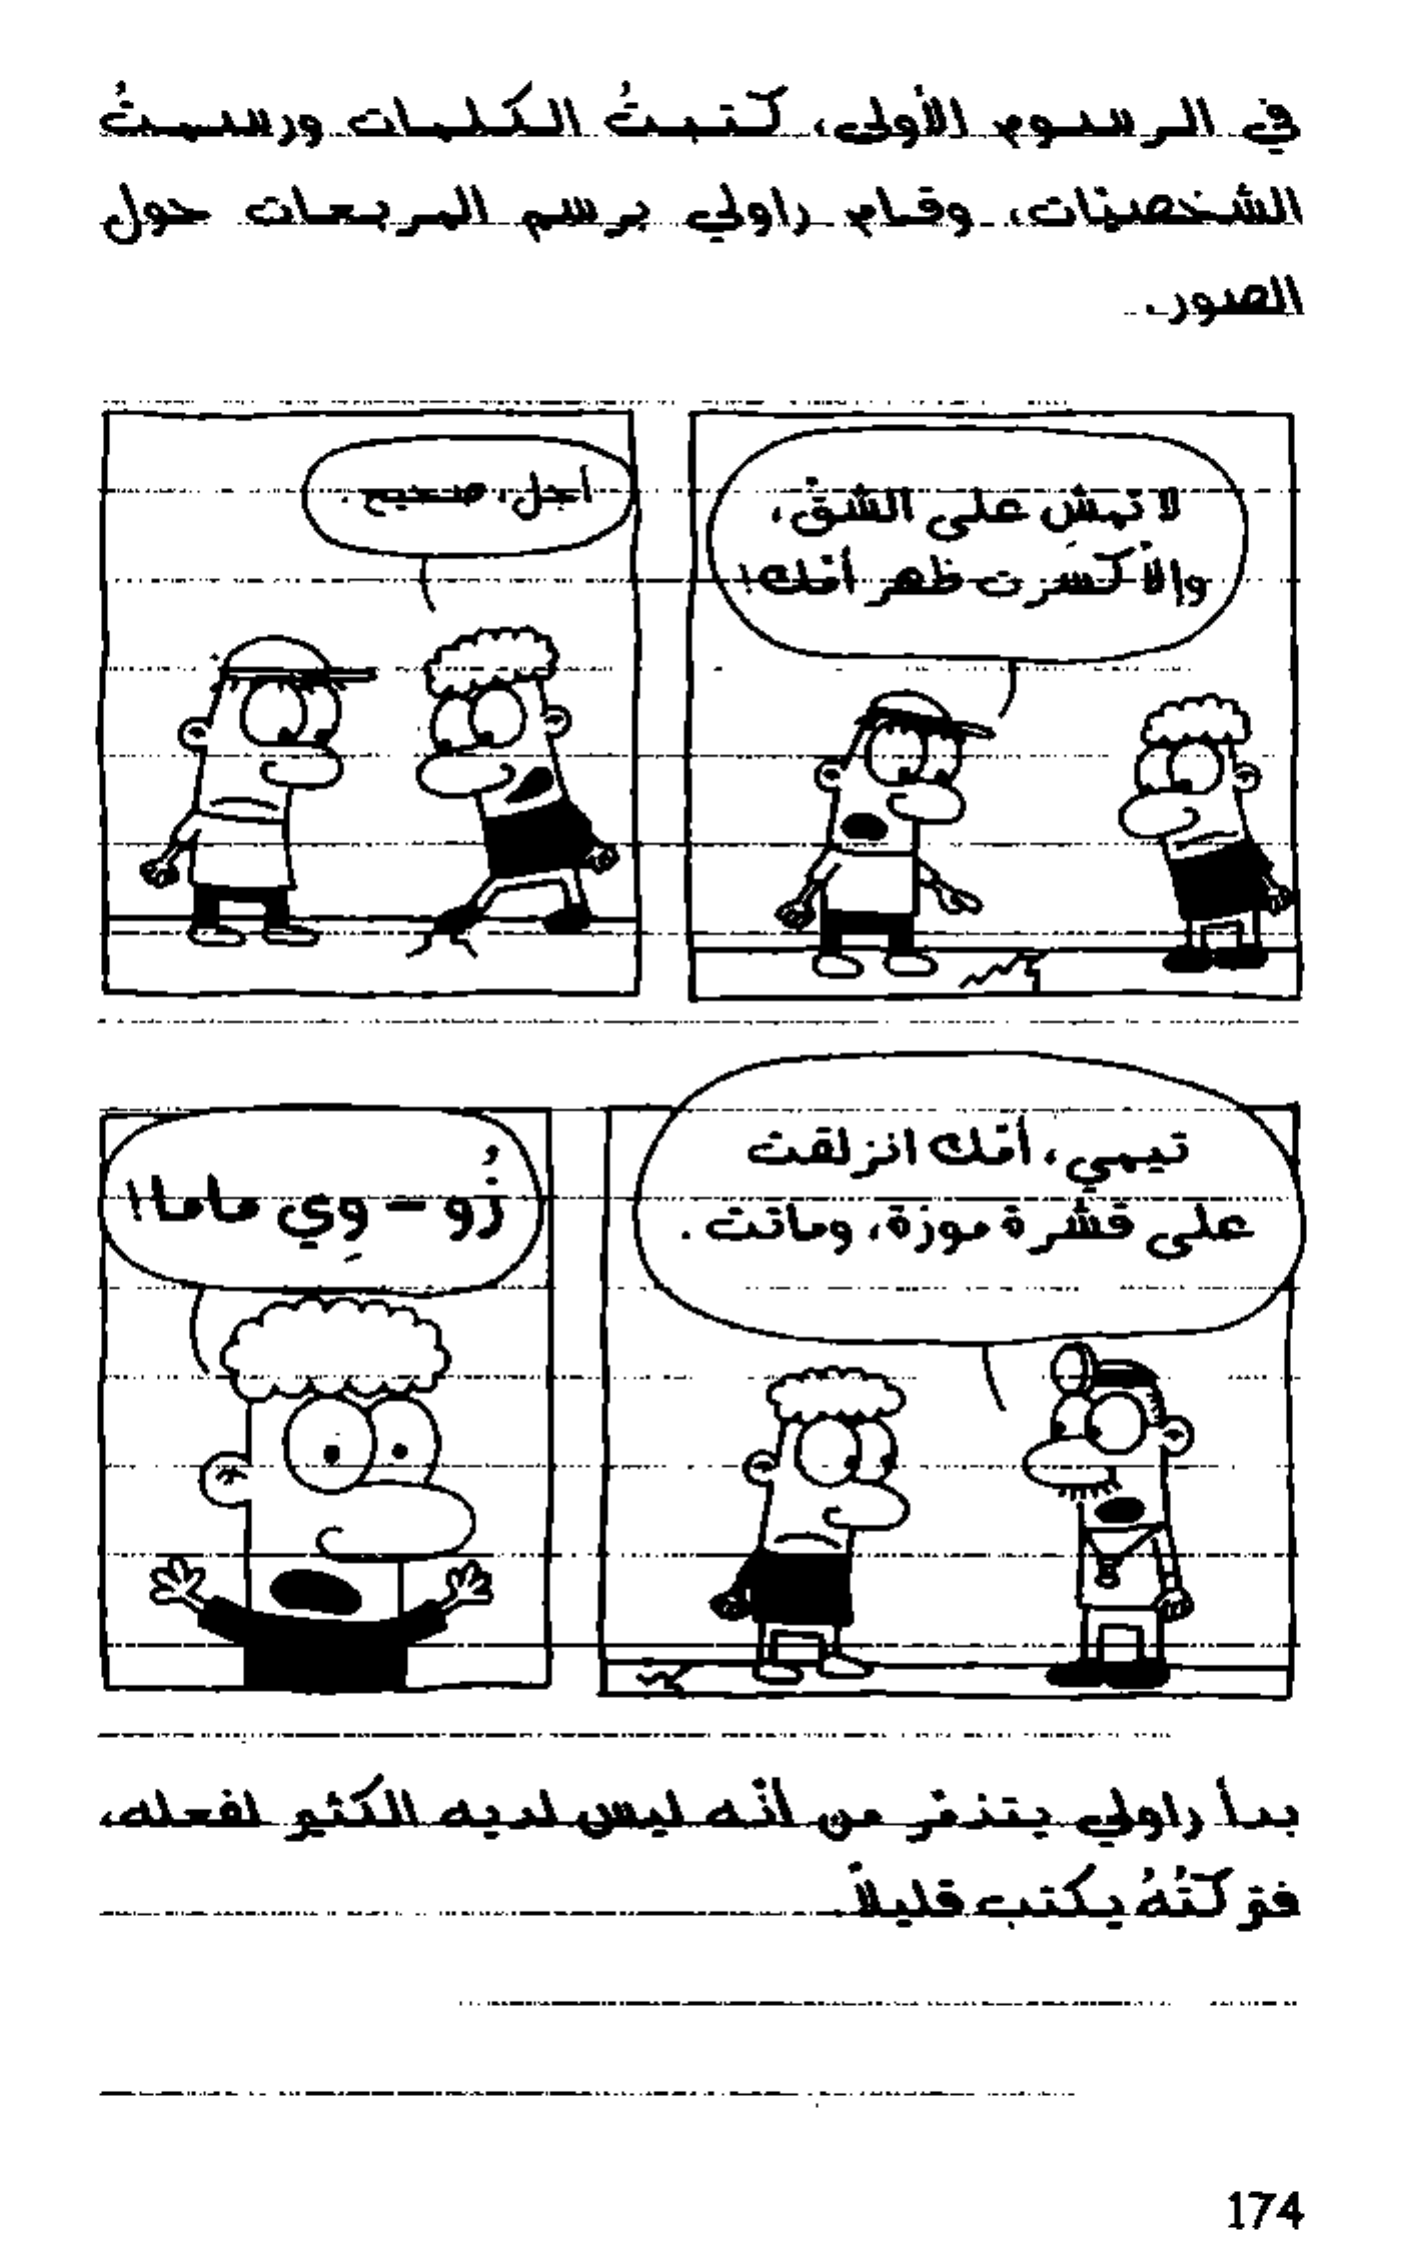 في الرسوم الأولى، كتبتُ الكلمات ورسمتُ
الشخصيّات، وقام راولي برسم المربعات حول
الصور.
لا تمشِ على الشقّ،
وإلاّ كسَرت ظهر أمّك!
أجل، صحيح.
تيمي، أمّك انزلقت
على قشرة موزة، وماتت.
زُو - وِي ماما!
بدأ راولي يتذمّر من أنّه ليس لديه الكثير لفعله،
فتركتُهُ يكتب قليلاً.
174